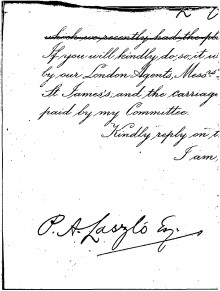 which we recently had the pl
If you will kindly do so, it w
by our London Agents, Messrs
St James's, and the carriage
paid by my Committee.
Kindly reply on t
I am,
P. A. Laszlo Esq.